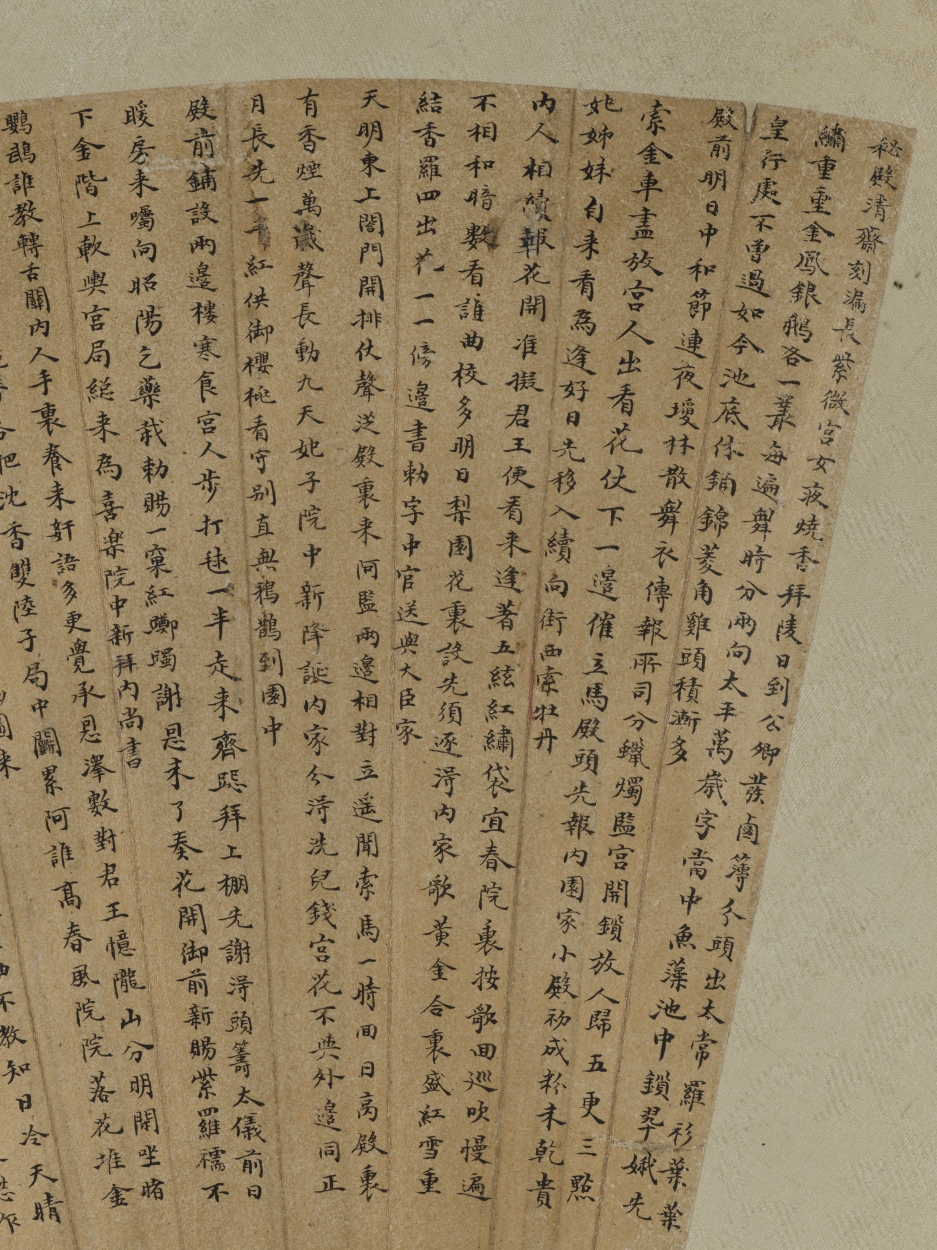 秘殿清齋刻漏長紫微宮女夜燒香拜陵日到公卿發鹵簿分頭出太常羅衫葉葉
繡重重金鳳銀鵝各一叢每遍舞時分兩向太平萬歲字當中魚藻池中鎖翠娥先
皇行處不曾過如今池底休鋪錦菱角雞頭積漸多
殿前明日中和節連夜瓊林散舞衣傳報所司分蠟燭監宮開鎖放人歸五更三點
索金車盡放宮人出看花仗下一邊催立馬殿頭先報內園家小殿初成粉未乾貴
妃姊妹自來看為逢好日先移入續向街西索牡丹
內人相續報花開准擬君王便看來逢著五絃紅繡袋宜春院裏按歌回巡吹慢遍
不相和暗數看誰曲校多明日梨園花裏設先須逐淂內家歌黃金合裏盛紅雪重
結香羅四出花一一傍邊書勅字中官送與大臣家
天明東上閤門開排仗聲從殿裏來阿監兩邊相對立遥聞索馬一時回日高殿裏
有香煙萬歲聲長動九天妃子院中新降誕內家分淂洗兒錢宮花不與外邊同正
月長先一番紅供御櫻桃看守别直無鵶鵲到園中
殿前鋪設兩邊樓寒食宮人步打毬一半走來齊跽拜上棚先謝淂頭籌太儀前日
暖房來囑向昭陽乞藥栽勅賜一窠紅躑躅謝恩未了奏花開御前新賜紫羅襦不
下金階上軟輿宮局總來為喜樂院中新拜內尚書
鸚鵡誰教轉舌關內人手裏養來奸語多更覺承恩澤數對君王憶隴山分明閑坐賭
各把沈香雙陸子局中鬬累阿誰高春風院院落花堆金
不教知日冷天晴